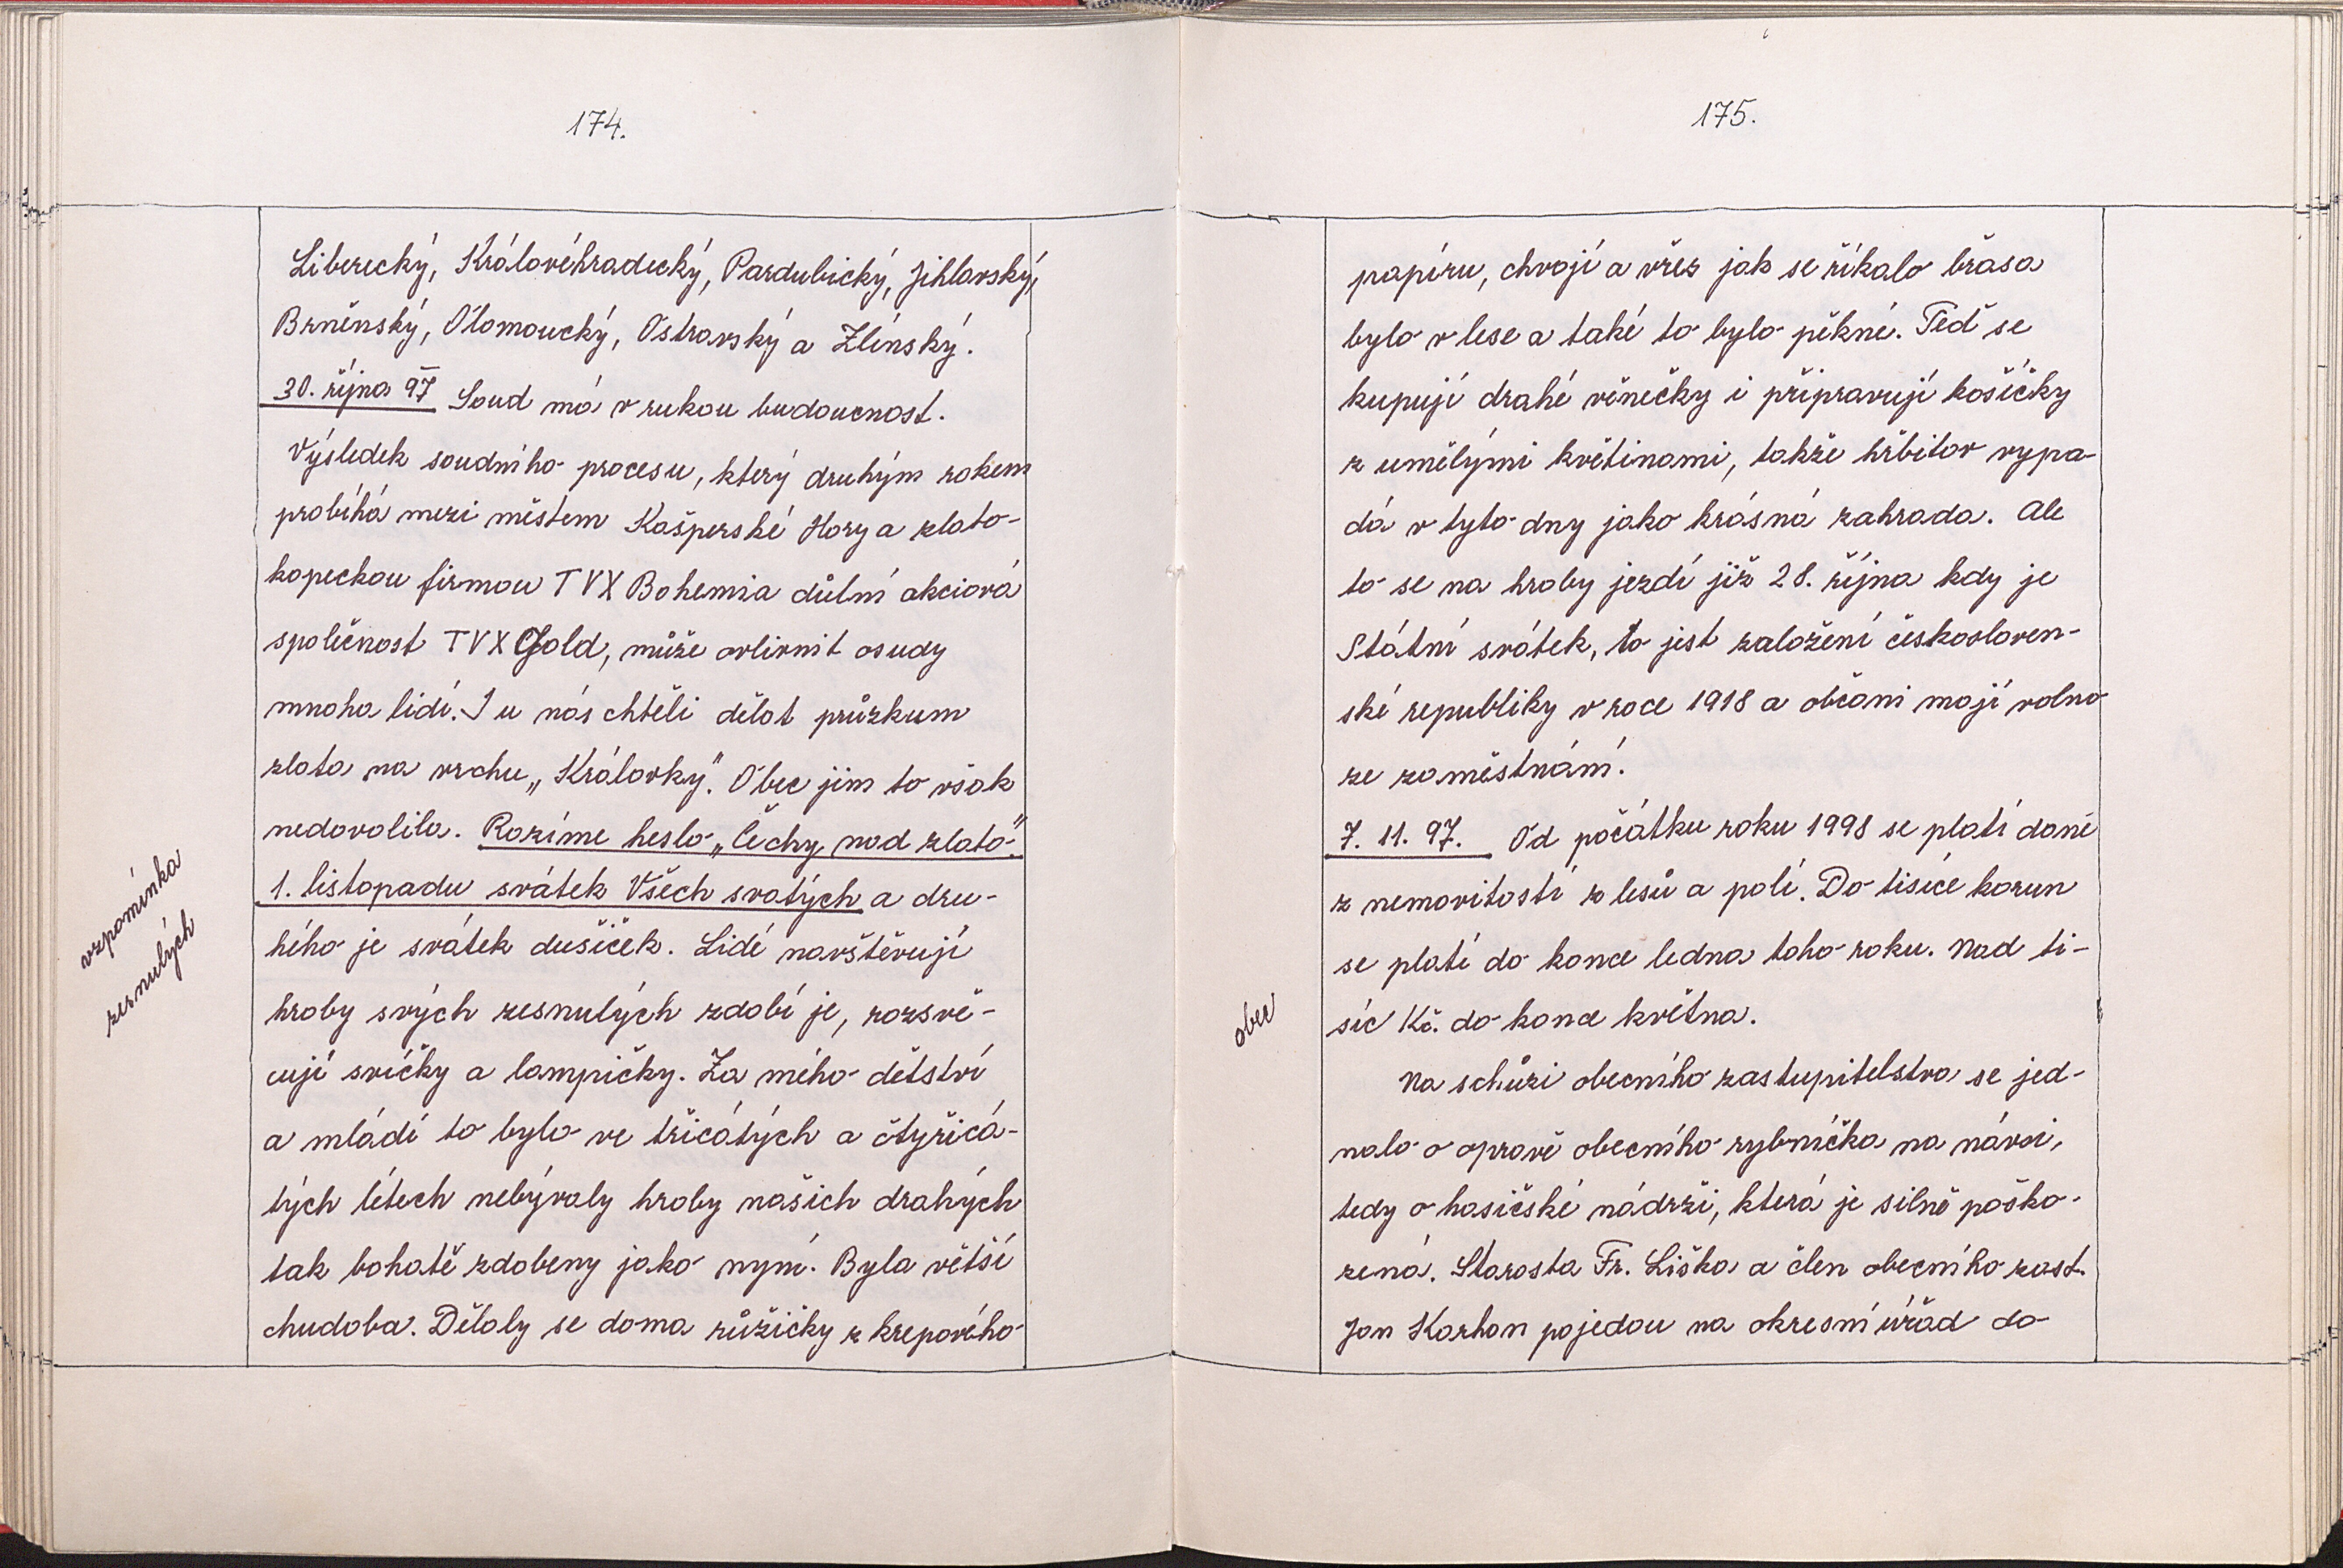 174.
Liberecký, Královéhradecký, Pardubický, Jihlavský,
Brněnský, Olomoucký, Ostravský a Zlínský.
30. října 97 Soud má v rukou budoucnost.
Výsledek soudního procesu, který druhým rokem
probíhá mezi městem Kašperské Hory a zlato-
kopeckou firmou TVX Bohemia důlní akciová
společnost TVX Gold, může ovlivnit osudy
mnoha lidí. I u nás chtěli dělat průzkum
zlata na vrchu „Královky". Obec jim to však
nedovolila. Razíme heslo „Čechy nad zlato"
1. listopadu svátek Všech svatých a dru-
hého je svátek dušiček. Lidé navštěvují
hroby svých zesnulých zdobí je, rozsvě-
cují svíčky a lampičky. Za mého dětství
a mládí to bylo ve třicátých a čtyřicá-
tých létech nebývaly hroby našich drahých
tak bohatě zdobeny jako nyní. Byla větší
chudoba. Dělaly se doma růžičky z krepového
vzpomínka
zesnulých
175.
papíru, chvojí a vřes jak se říkalo břasa
bylo v lese a také to bylo pěkné. Teď se
kupují drahé věnečky i připravují košíčky
z umělými květinami, takže hřbitov vypa-
dá v tyto dny jako krásná zahrada. Ale
to se na hroby jezdí již 28. října kdy je
Státní svátek, to jest založení českosloven-
ské republiky v roce 1918 a občani mají volno
ze zaměstnání.
7. 11. 97. Od počátku roku 1998 se platí daně
z nemovitostí z lesů a polí. Do tisíce korun
se platí do konce ledna toho roku. Nad ti-
síc Kč. do konce května.
Na schůzi obecního zastupitelstva se jed-
nalo o opravě obecního rybníčka na návsi,
tedy o hasičské nádrži, která je silně poško-
zená. Starosta Fr. Liška a člen obecního zast.
Jan Karhan pojedou na okresní úřad do
obec